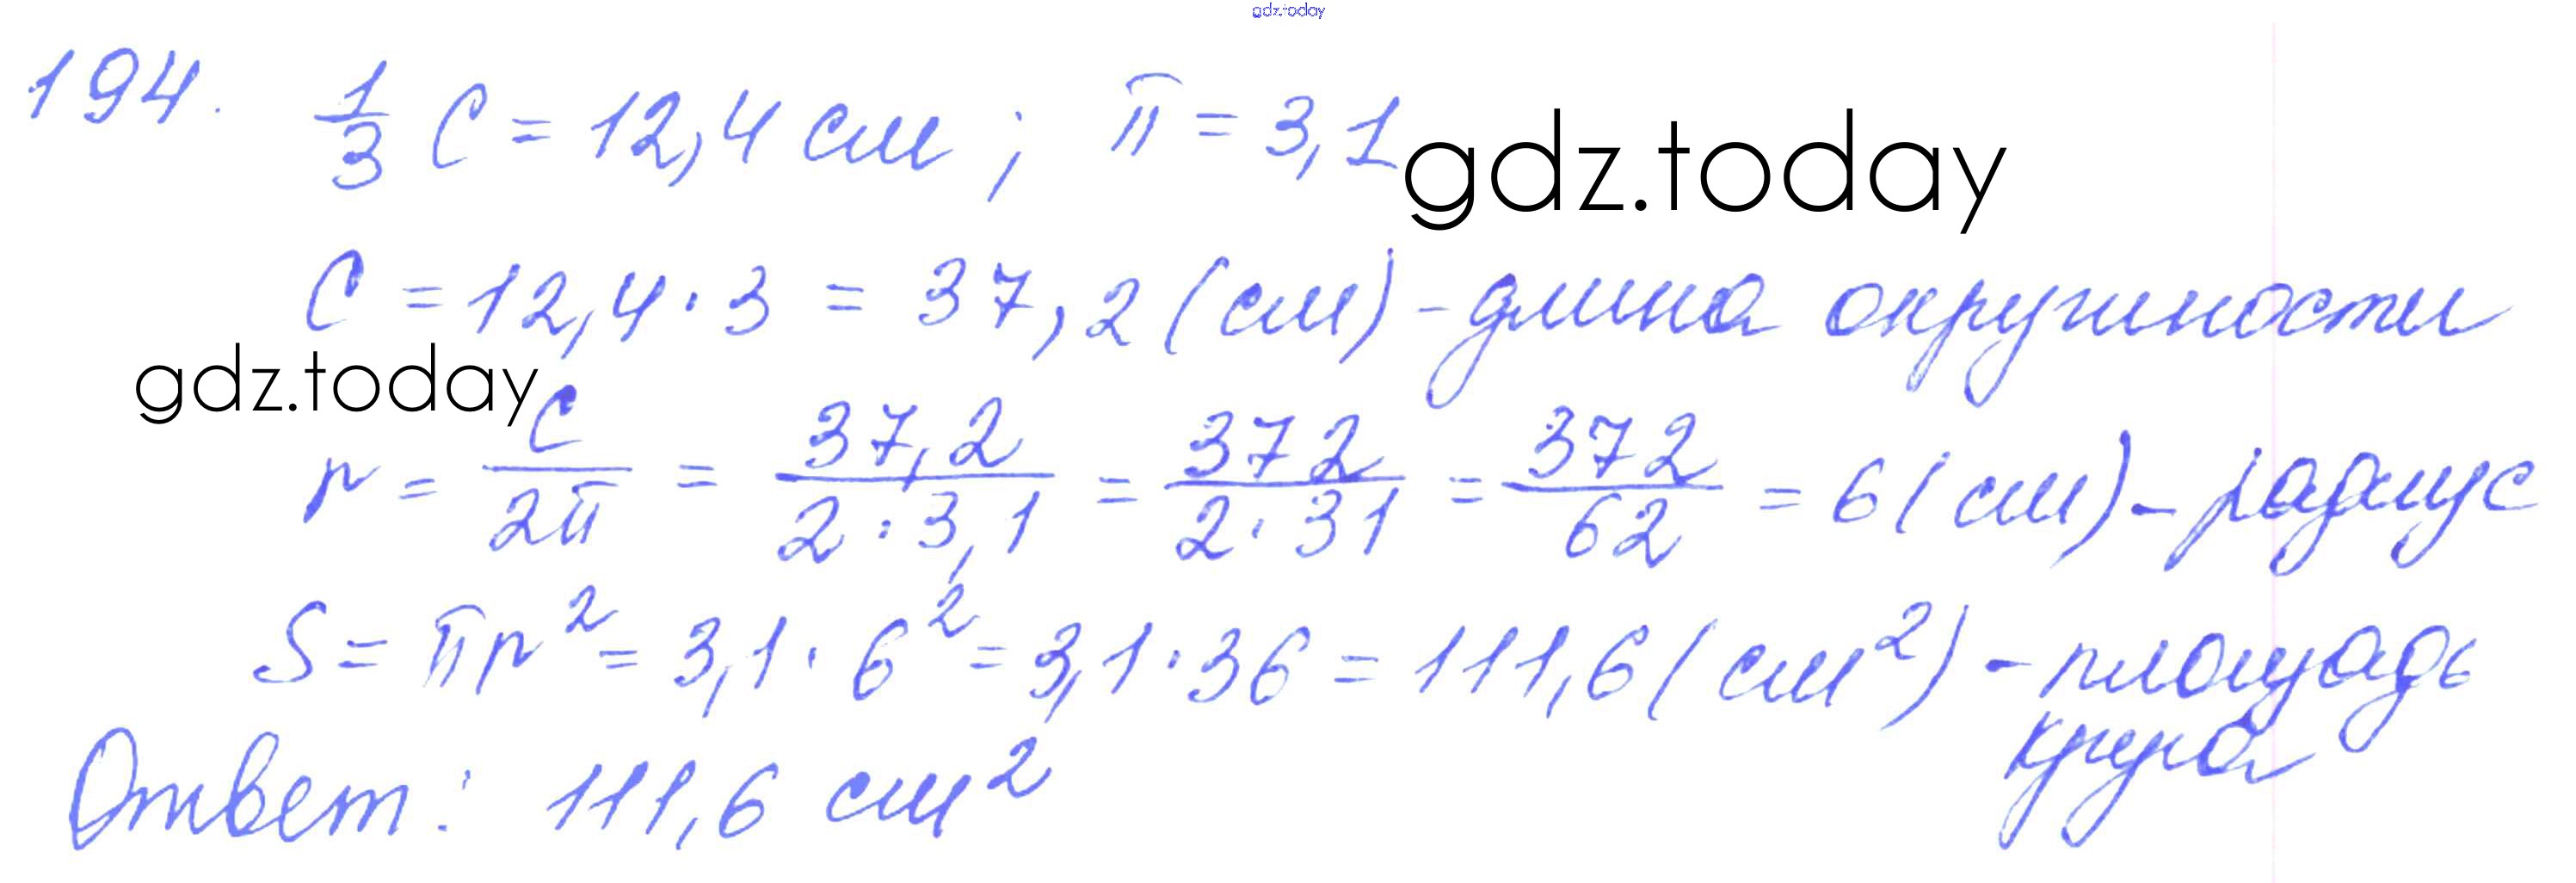 gdz.today
194. 1/3 C = 12,4 см ; π = 3,1
gdz.today
C = 12,4 · 3 = 37,2 (см) - длина окружности
gdz.today
r = C/2π = 37,2/2·3,1 = 372/2·31 = 372/62 = 6 (см) - радиус
S = πr² = 3,1 · 6² = 3,1 · 36 = 111,6 (см²) - площадь
круга
Ответ: 111,6 см²